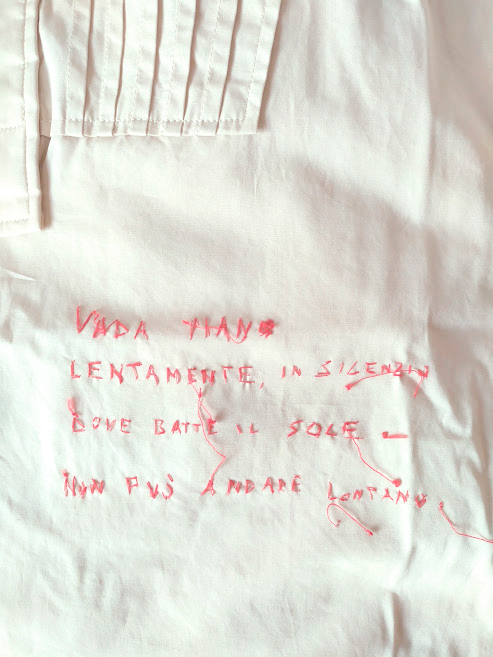 VADA PIANO
LENTAMENTE, IN SILENZIO
DOVE BATTE IL SOLE –
NON PUÒ ANDARE LONTANO